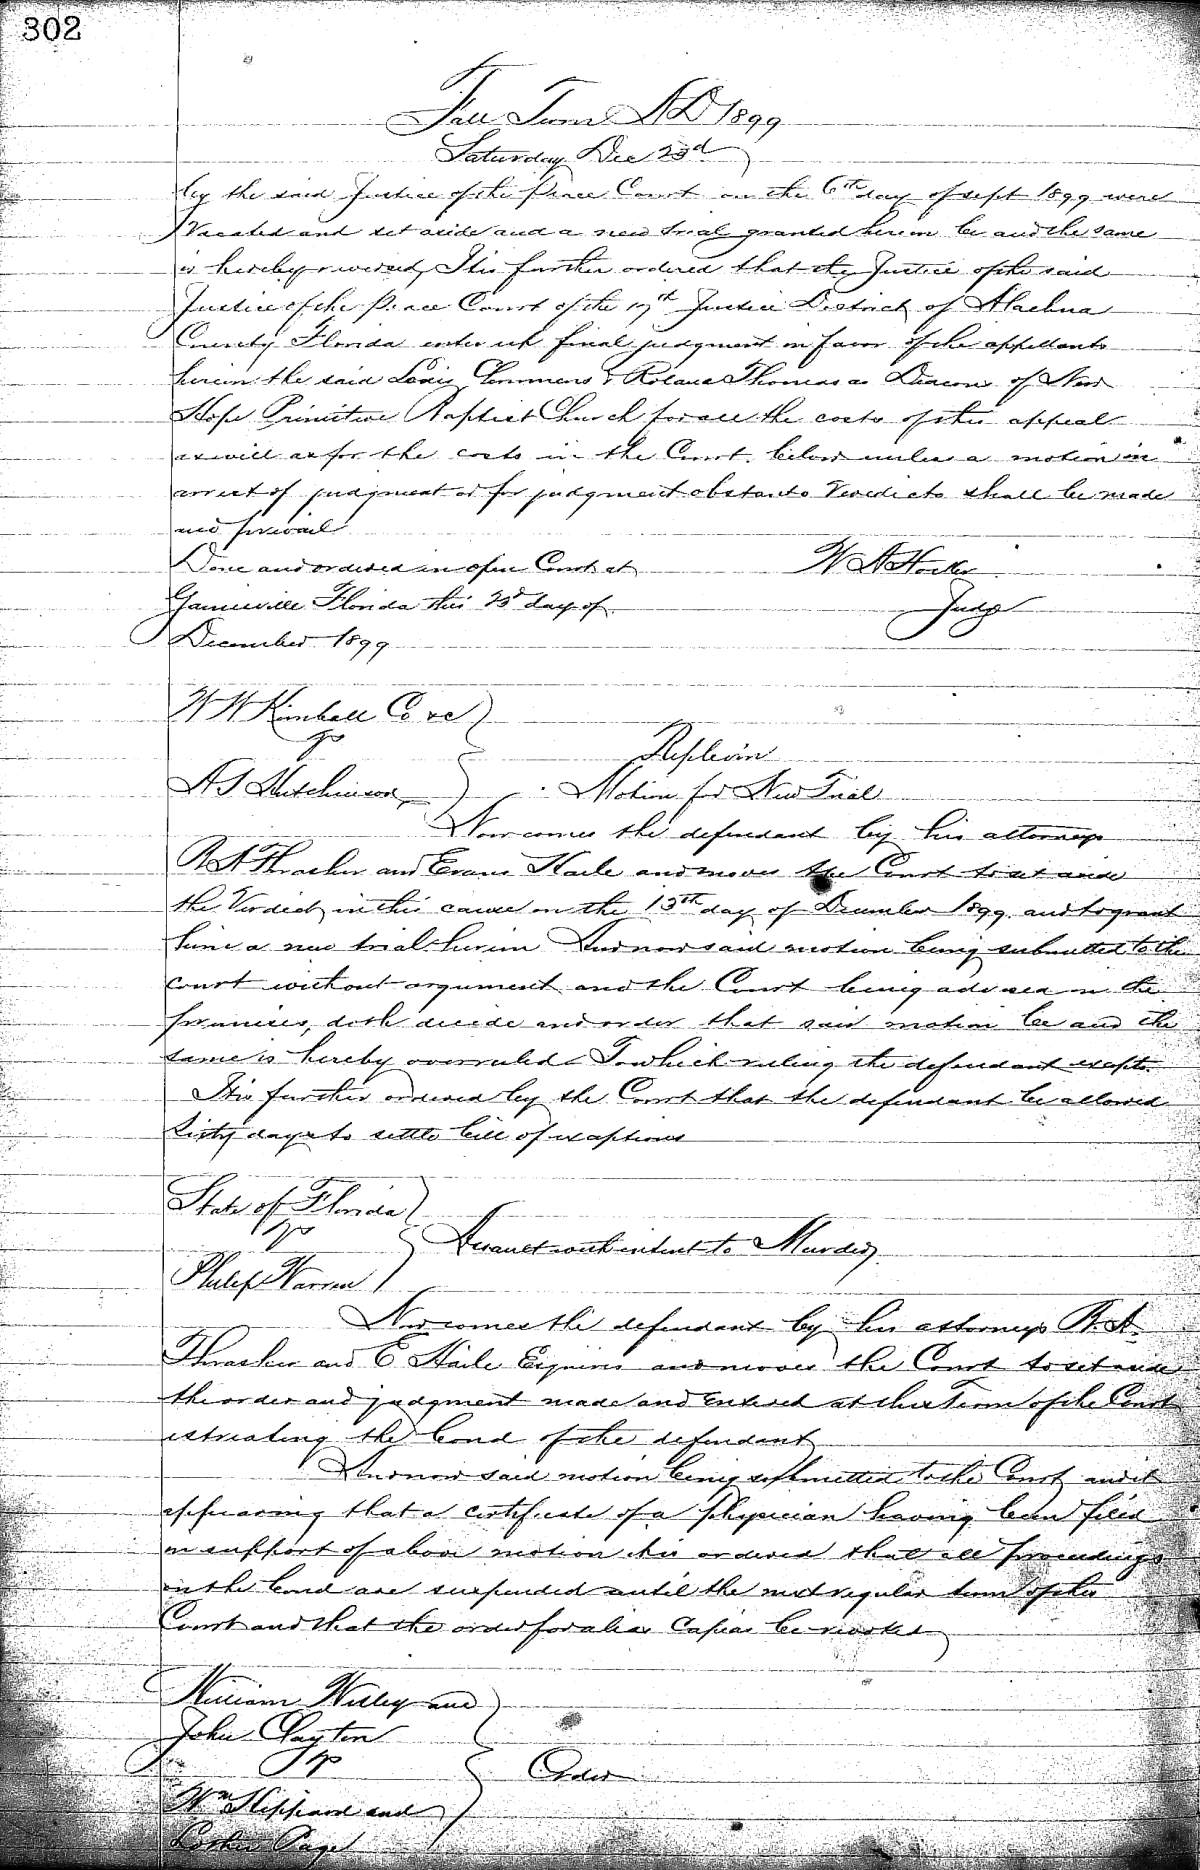 302
Fall Term AD 1899
Saturday Dec 23d
by the said Justice of the Peace Court on the 6th day of Sept 1899 were
Vacated and set aside and a new trial granted herein be and the same
is hereby reversed, It is further ordered that the Justice of the said
Justice of the Peace Court of the 17th Justice District of Alachua
County Florida enter up final judgment in favor of the appellants
herein the said Lewis Clemmons & Roland Thomas as Deacons of New
Hope Primitive Baptist Church for all the costs of this appeal
as well as for the costs in the Court below unless a motion in
arrest of judgment or for judgment obstanto Veredicto shall be made
and prevail
Done and ordered in open Court at W A Hocker
Gainesville Florida this 23d day of Judge
December 1899
W W Kimball Co
vs Replevin
A S Hutchinson Motion for New Trial
Now comes the defendant by his attorneys
B A Thrasher and Evans Haile and moves the Court to set aside
the Verdict in this cause on the 13th day of December 1899 and to grant
him a new trial herein And now said motion being submitted to the
court without argument and the Court being advised in the
premises, doth decide and order that said motion be and the
same is hereby overruled To which ruling the defendant excepts
It is further ordered by the Court that the defendant be allowed
Sixty days to settle bill of exceptions
State of Florida
vs Assault with intent to Murder
Philip Warren
Now comes the defendant by his attorneys B. A.
Thrasher and E Haile Esquires and moves the Court to set aside
the order and judgment made and entered at this Term of the Court
estreating the bond of the defendant
And now said motion being submitted to the Court and it
appearing that a certificate of a physician having been filed
in support of above motion it is ordered that all proceedings
on the bond are suspended until the next regular term of this
Court and that the order for alias Capias be revoked
William Willey and
John Clayton
vs Order
Wm Sheppard and
Paget